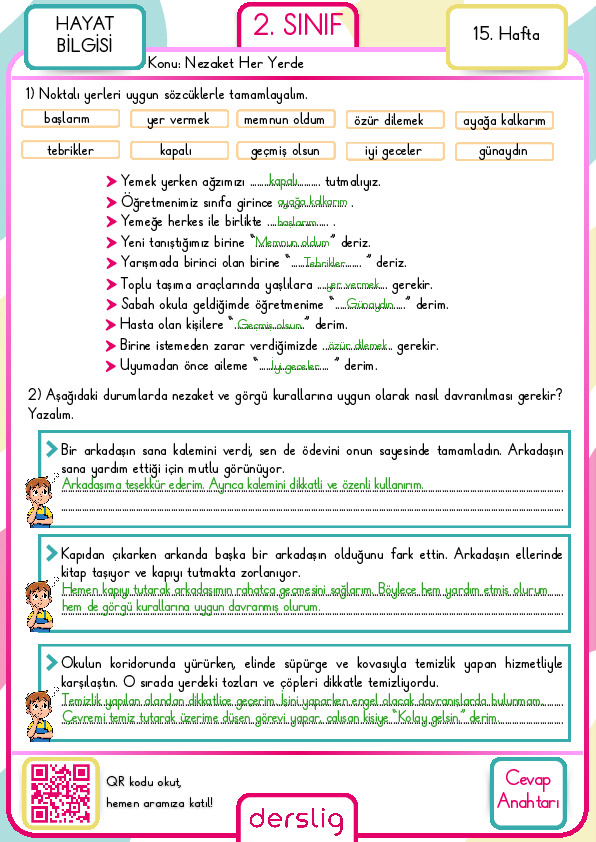 HAYAT
BİLGİSİ
2. SINIF
15. Hafta
Konu: Nezaket Her Yerde
1) Noktalı yerleri uygun sözcüklerle tamamlayalım.
başlarım yer vermek memnun oldum özür dilemek ayağa kalkarım
tebrikler kapalı geçmiş olsun iyi geceler günaydın
Yemek yerken ağzımızı ........kapalı........ tutmalıyız.
Öğretmenimiz sınıfa girince ayağa kalkarım .
Yemeğe herkes ile birlikte ...başlarım... .
Yeni tanıştığımız birine “Memnun oldum” deriz.
Yarışmada birinci olan birine “....Tebrikler.... ” deriz.
Toplu taşıma araçlarında yaşlılara ...yer vermek... gerekir.
Sabah okula geldiğimde öğretmenime “....Günaydın....” derim.
Hasta olan kişilere “.Geçmiş olsun..” derim.
Birine istemeden zarar verdiğimizde ..özür dilemek.. gerekir.
Uyumadan önce aileme “....İyi geceler.... ” derim.
2) Aşağıdaki durumlarda nezaket ve görgü kurallarına uygun olarak nasıl davranılması gerekir?
Yazalım.
Bir arkadaşın sana kalemini verdi, sen de ödevini onun sayesinde tamamladın. Arkadaşın
sana yardım ettiği için mutlu görünüyor.
Arkadaşıma teşekkür ederim. Ayrıca kalemini dikkatli ve özenli kullanırım.
Kapıdan çıkarken arkanda başka bir arkadaşın olduğunu fark ettin. Arkadaşın ellerinde
kitap taşıyor ve kapıyı tutmakta zorlanıyor.
Hemen kapıyı tutarak arkadaşımın rahatça geçmesini sağlarım. Böylece hem yardım etmiş olurum
hem de görgü kurallarına uygun davranmış olurum.
Okulun koridorunda yürürken, elinde süpürge ve kovasıyla temizlik yapan hizmetliyle
karşılaştın. O sırada yerdeki tozları ve çöpleri dikkatle temizliyordu.
Temizlik yapılan alandan dikkatlice geçerim. İşini yaparken engel olacak davranışlarda bulunmam.
Çevremi temiz tutarak üzerime düşen görevi yapar, çalışan kişiye “Kolay gelsin.” derim.
QR kodu okut,
hemen aramıza katıl!
derslig
Cevap
Anahtarı